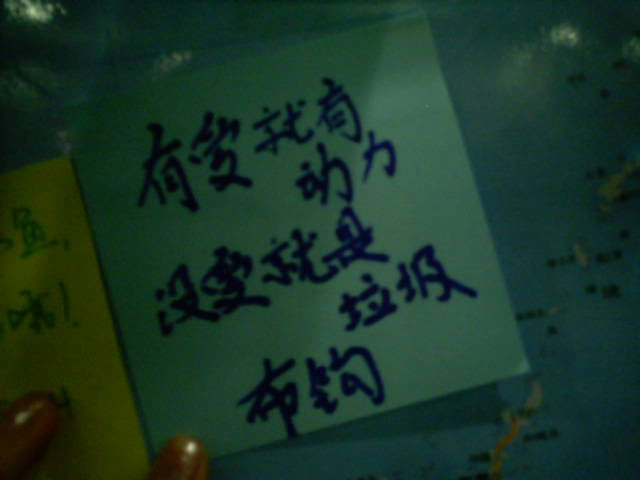 有爱就有
动力
没爱就是
垃圾
布钧
鱼,
哦!